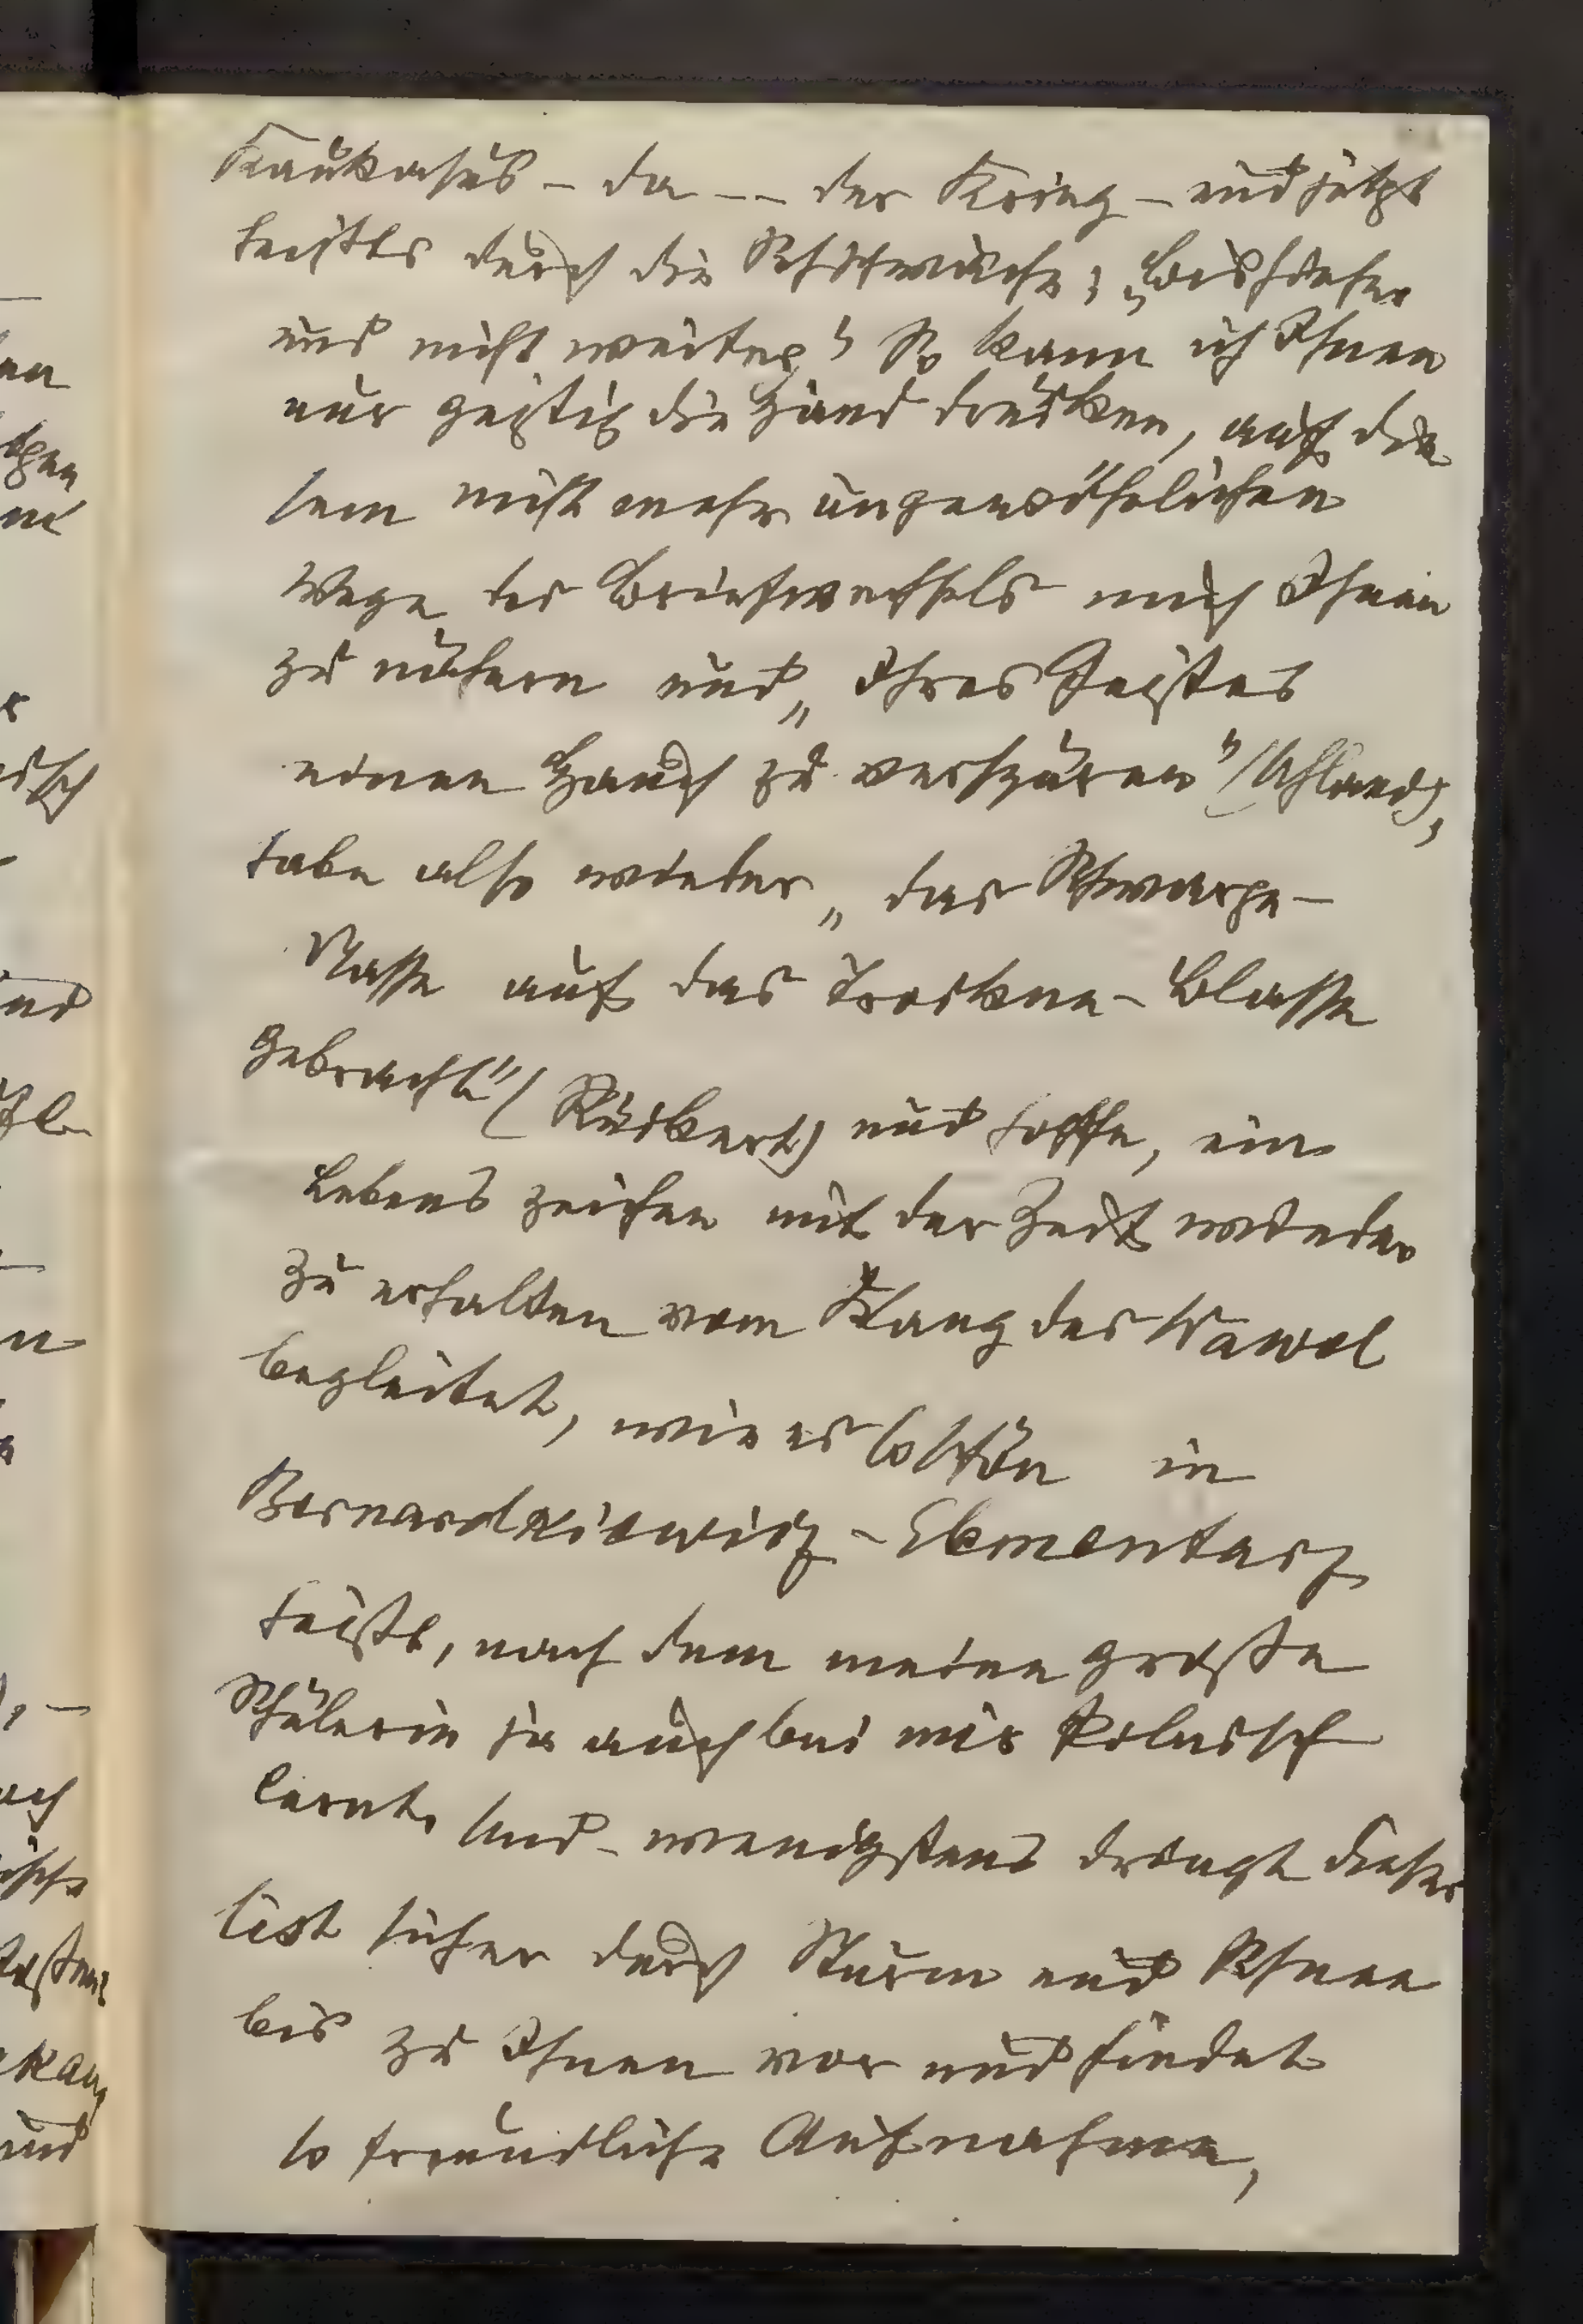 Kaukasus – da –– der Krieg – und jetzt
heißts durch die Sehschwäche: „Bis hieher
und nicht weiter!" So kann ich Ihnen
nur geistig die Hand drücken, auf die
sem nicht mehr ungewöhnlichen
Wege des Briefwechsels mich Ihnen
zu nähern und „Ihres Geistes
einen Hauch zu verspüren" (Uhland),
habe also wieder „das Schwarze-
Nasse auf das Trockne-Blasse
gebracht" (Rückert) und hoffe, ein
Lebenszeichen mit der Zeit wieder
zu erhalten vom Klang des Wawel
begleitet, wie es so schön in
Bernardkiewicz-Elementarz
heißt, nach dem meine große
Schülerin ja auch bei mir Polnisch
lernt. Und wenigstens dringt dieser
sicher durch Sturm und Schnee
bis zu Ihnen vor und findet
so freundliche Aufnahme,